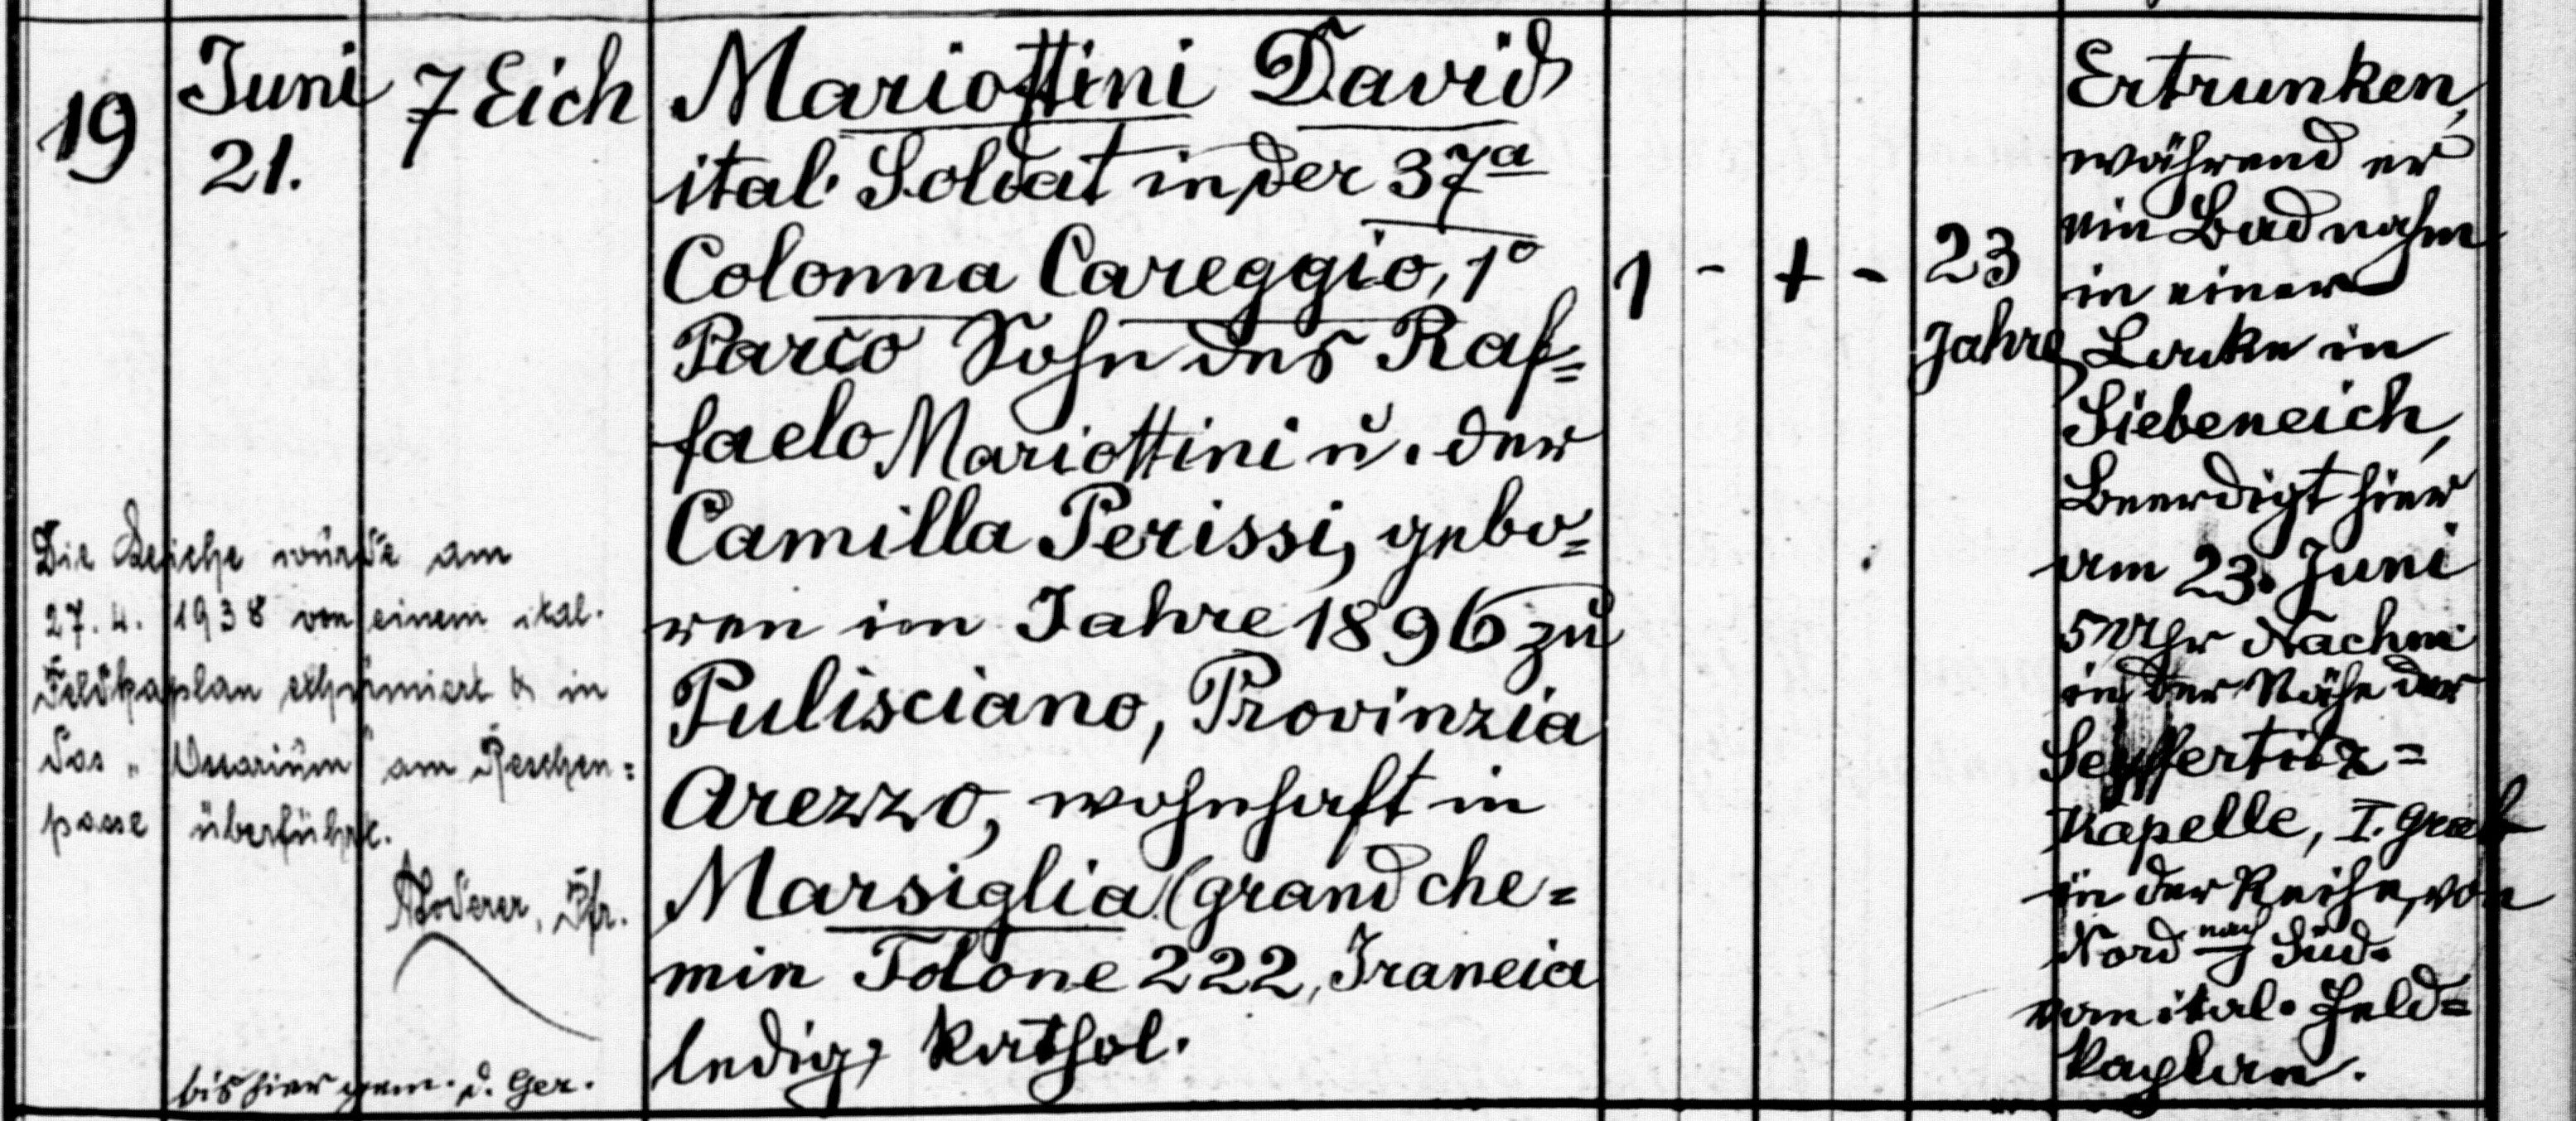 19
Juni
21.
7 Eich
Mariottini David
ital. Soldat in der 37a
Colonna Careggio, 1°
Parco Sohn des Raf=
faelo Mariottini u. der
Camilla Perissi, gebo=
ren im Jahre 1896 zu
Pulisciano, Provinzia
Arezzo, wohnhaft in
Marsiglia (grand che=
min Tolone 222, Francia
ledig, kathol.
1 - + -
23
Jahre
Ertrunken,
während er
ein Bad nahm
in einer
Lacke in
Siebeneich,
Beerdigt hier
am 23. Juni
5 Uhr Nachmi
in der Nähe der
Seyffertitz=
Kapelle, I. Grab
in der Reihe, von
Nord nach Süd.
vom ital. Feld=
kaplan.
Die Leiche wurde am
27. 4. 1938 von einem ital.
Feldkaplan exhumiert & in
das "Ossarium" am Reschen=
passe überführt.
Pfr.
bis hier gem. d. Ger.